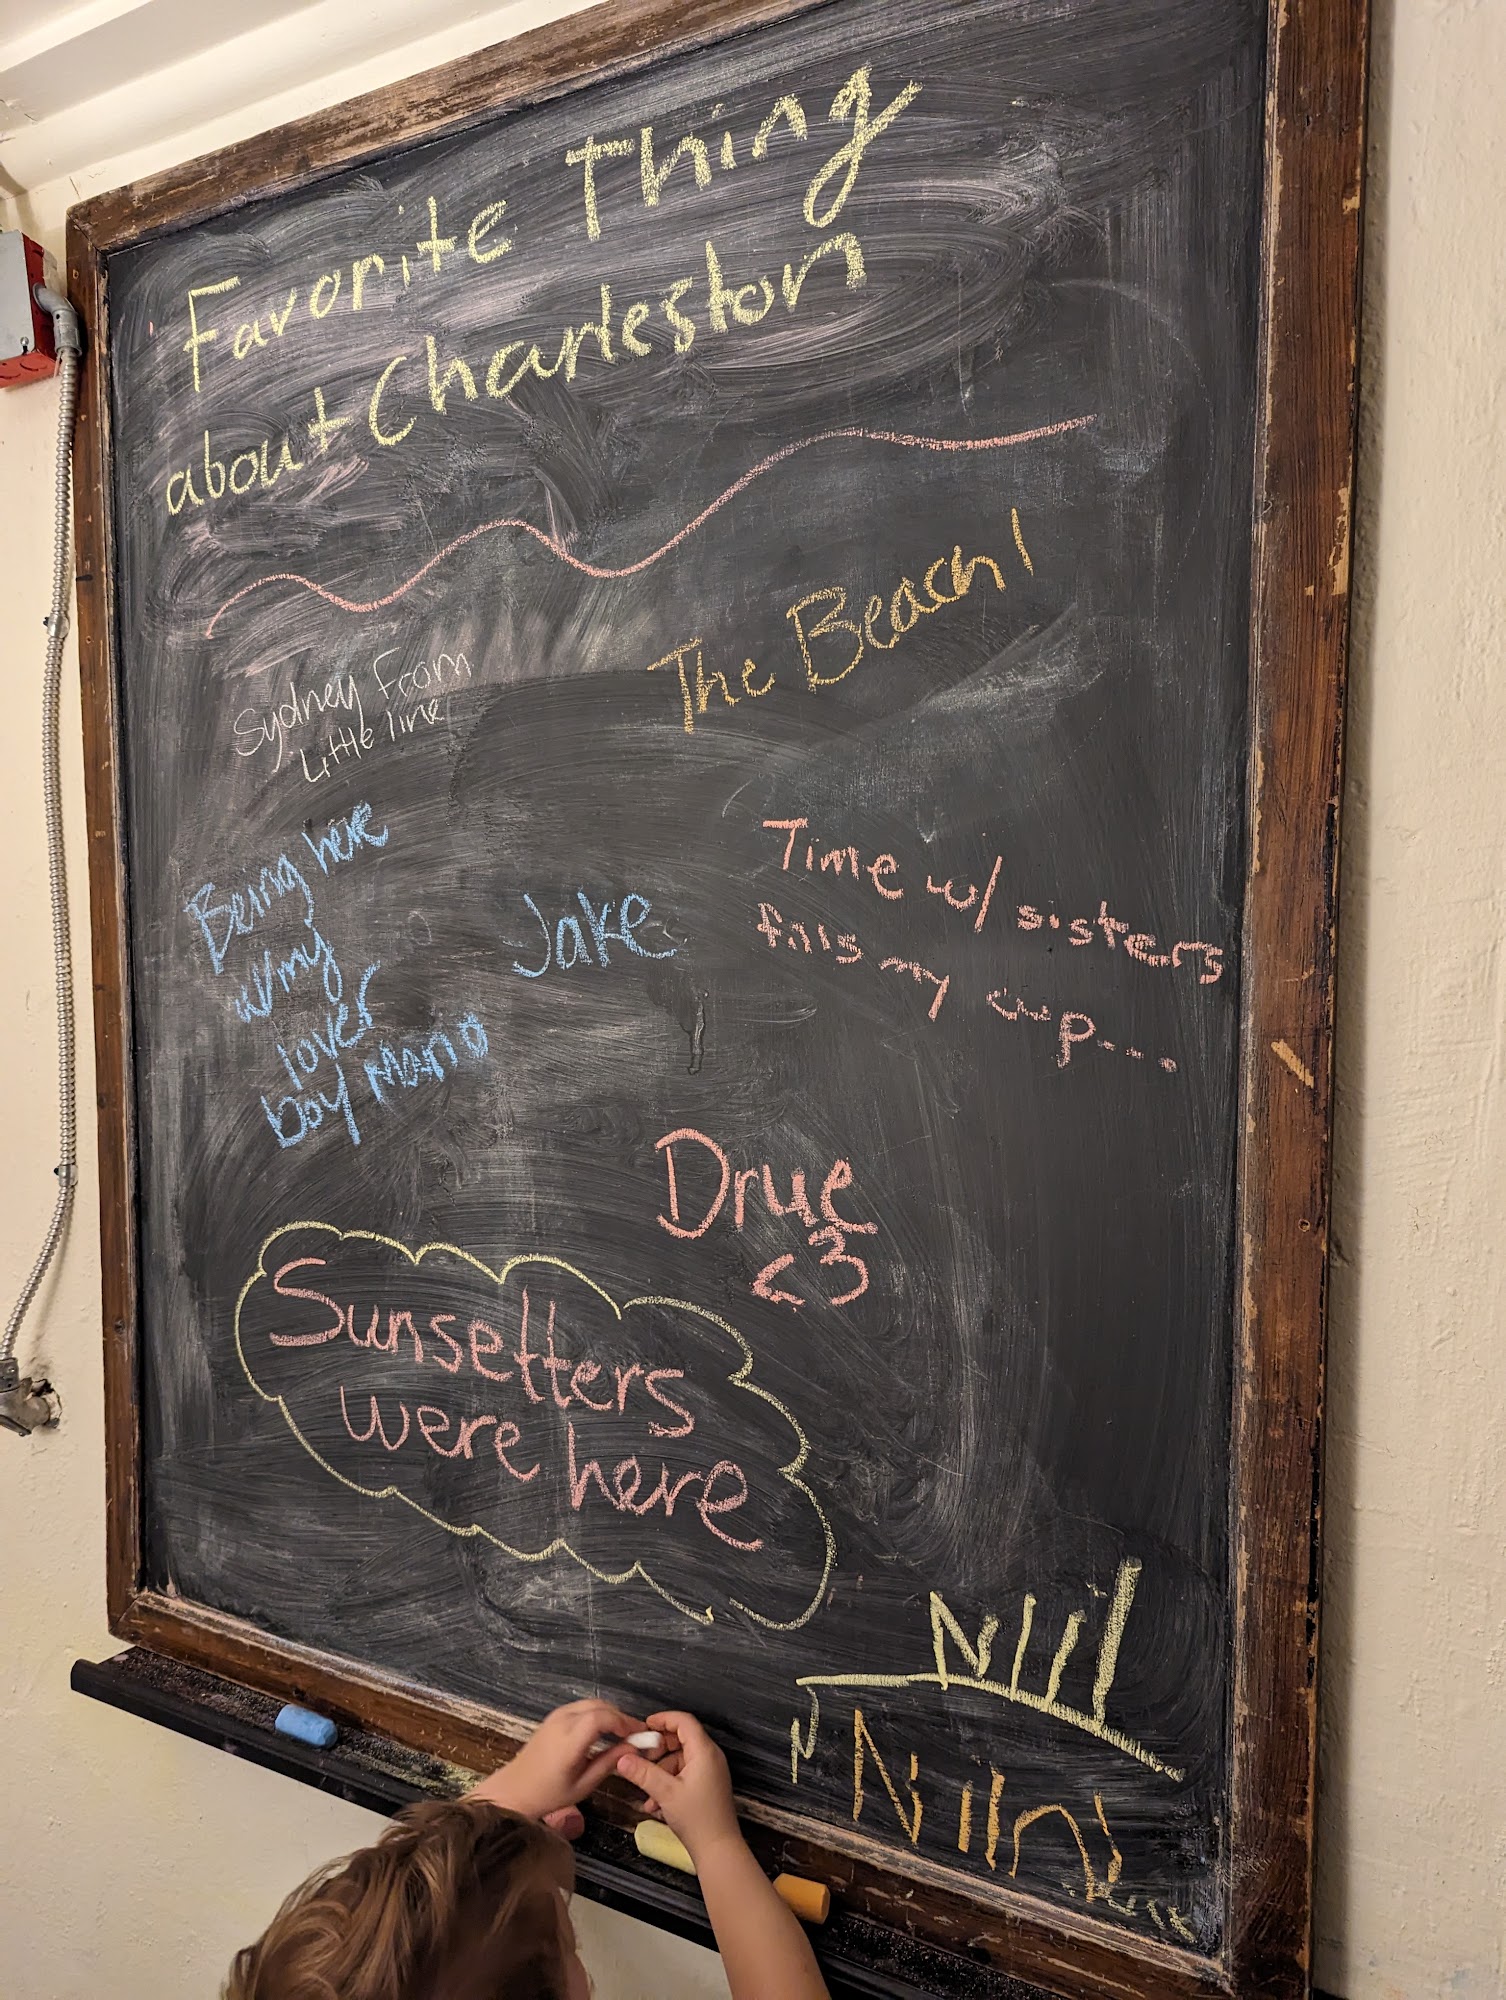 Favorite Thing
about Charleston
The Beach!
Sydney From
Little line
Being here
w/my
lover
boy
Jake
Time w/ sisters
fills my cup...
Drue
<3
Sunsetters
were here